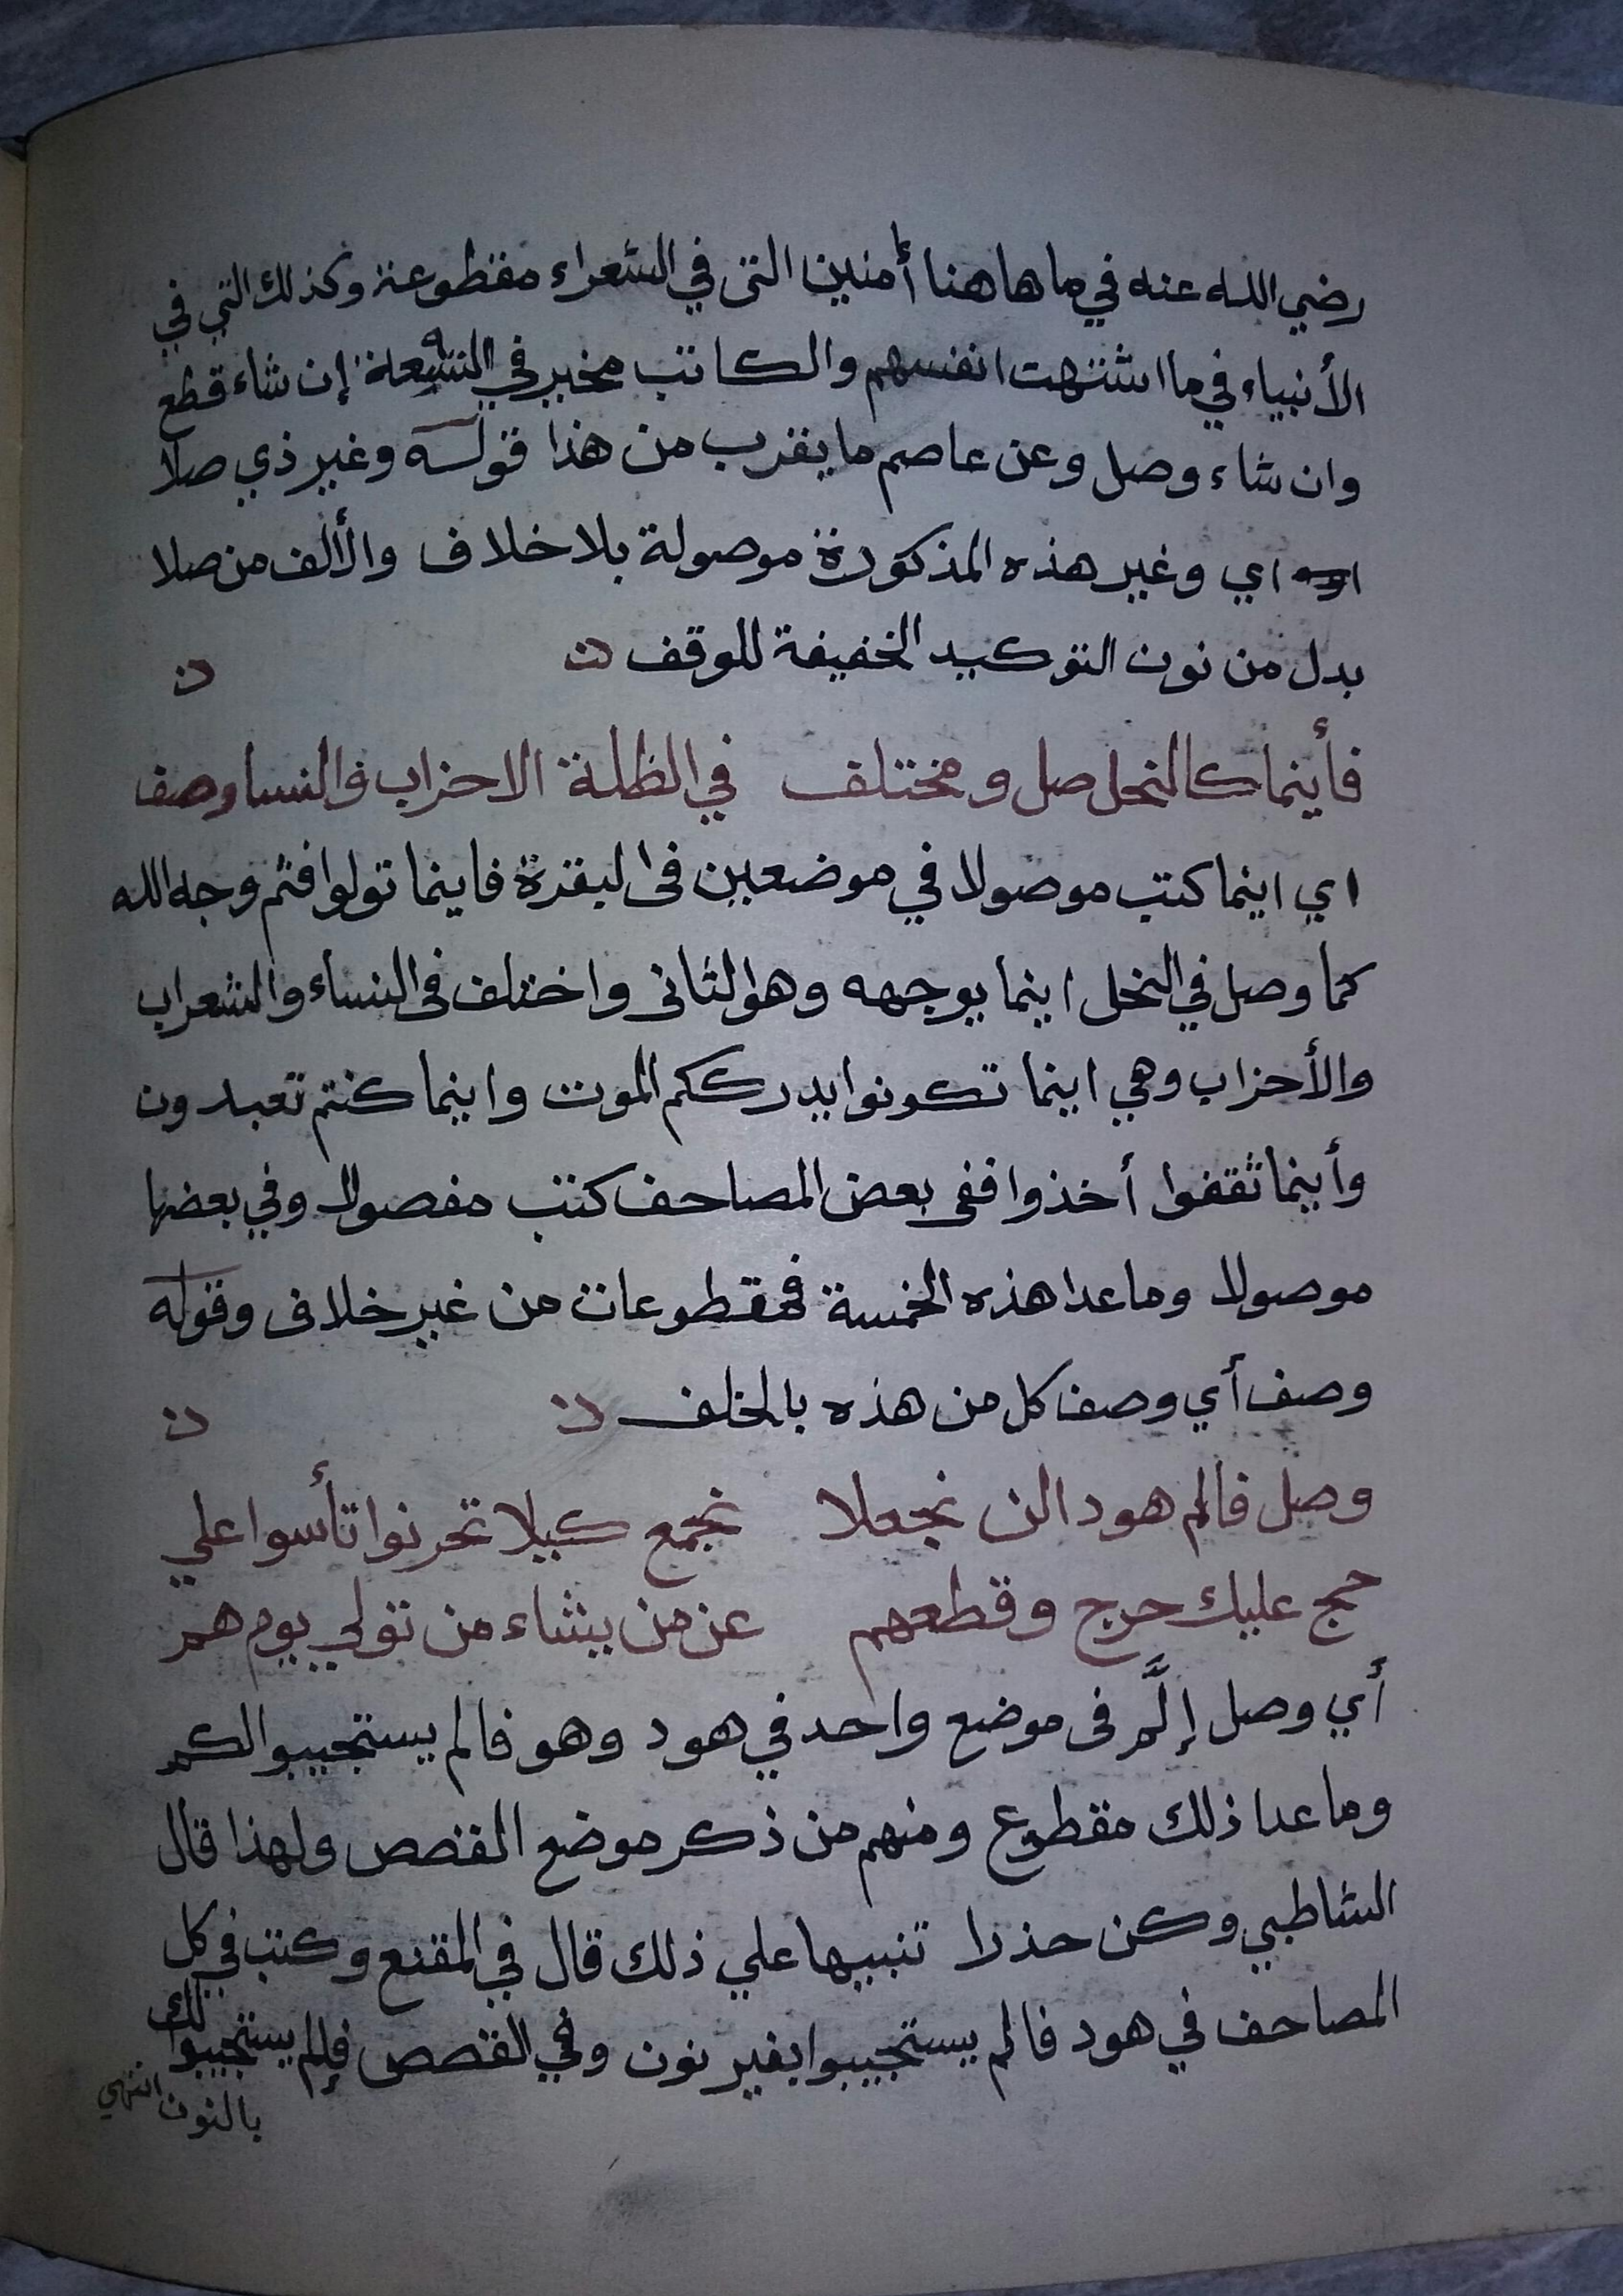 رضي الله عنه في ما هاهنا أمنين التى في الشعراء مقطوعة وكذلك التي في
الأنبياء في ما اشتهت انفسهم والكاتب مخير في التسعة إن شاء قطع
وان شاء وصل وعن عاصم ما يقرب من هذا قوله وغير ذي صلا
اي وغير هذه المذكورة موصولة بلا خلاف والألف من صلا
بدل من نون التوكيد الخفيفة للوقف
فأينما كالنحل صل ومختلف في الظلة الاحزاب والنسا وصف
اي اينما كتب موصولا في موضعين فى البقرة فاينما تولوا فثم وجه الله
كما وصل في النحل اينما يوجهه وهو الثانى واختلف فى النساء والشعراب
والأحزاب وهي اينما تكونوا يدرككم الموت واينما كنتم تعبدون
وأينما ثقفوا أخذوا ففى بعض المصاحف كتب مفصولا وفي بعضها
موصولا وما عدا هذه الخمسة فمقطوعات من غير خلاف وقوله
وصف أي وصف كل من هذه بالخلف
وصل فالم هود الن نجعلا نجمع كيلا تحزنوا تأسوا علي
حج عليك حرج وقطعهم عن من يشاء من تولي يوم هم
أي وصل إلَّم فى موضع واحد في هود وهو فالم يستجيبوا لكم
وما عدا ذلك مقطوع ومنهم من ذكر موضع القصص ولهذا قال
الشاطبي وكن حذرا تنبيها علي ذلك قال في المقنع وكتب في كل
المصاحف في هود فالم يستجيبوا بغير نون وفي القصص فإلم يستجيبوا لك
بالنون انتهي